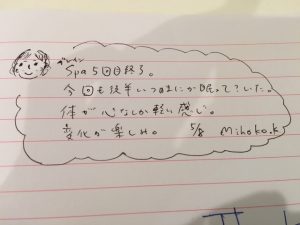 ブレイン
Spa 5回目終了。
今回も後半いつのまにか眠っていた。
体が心なしか軽い感じ。
変化が楽しみ。 5/8 Mihoko.K